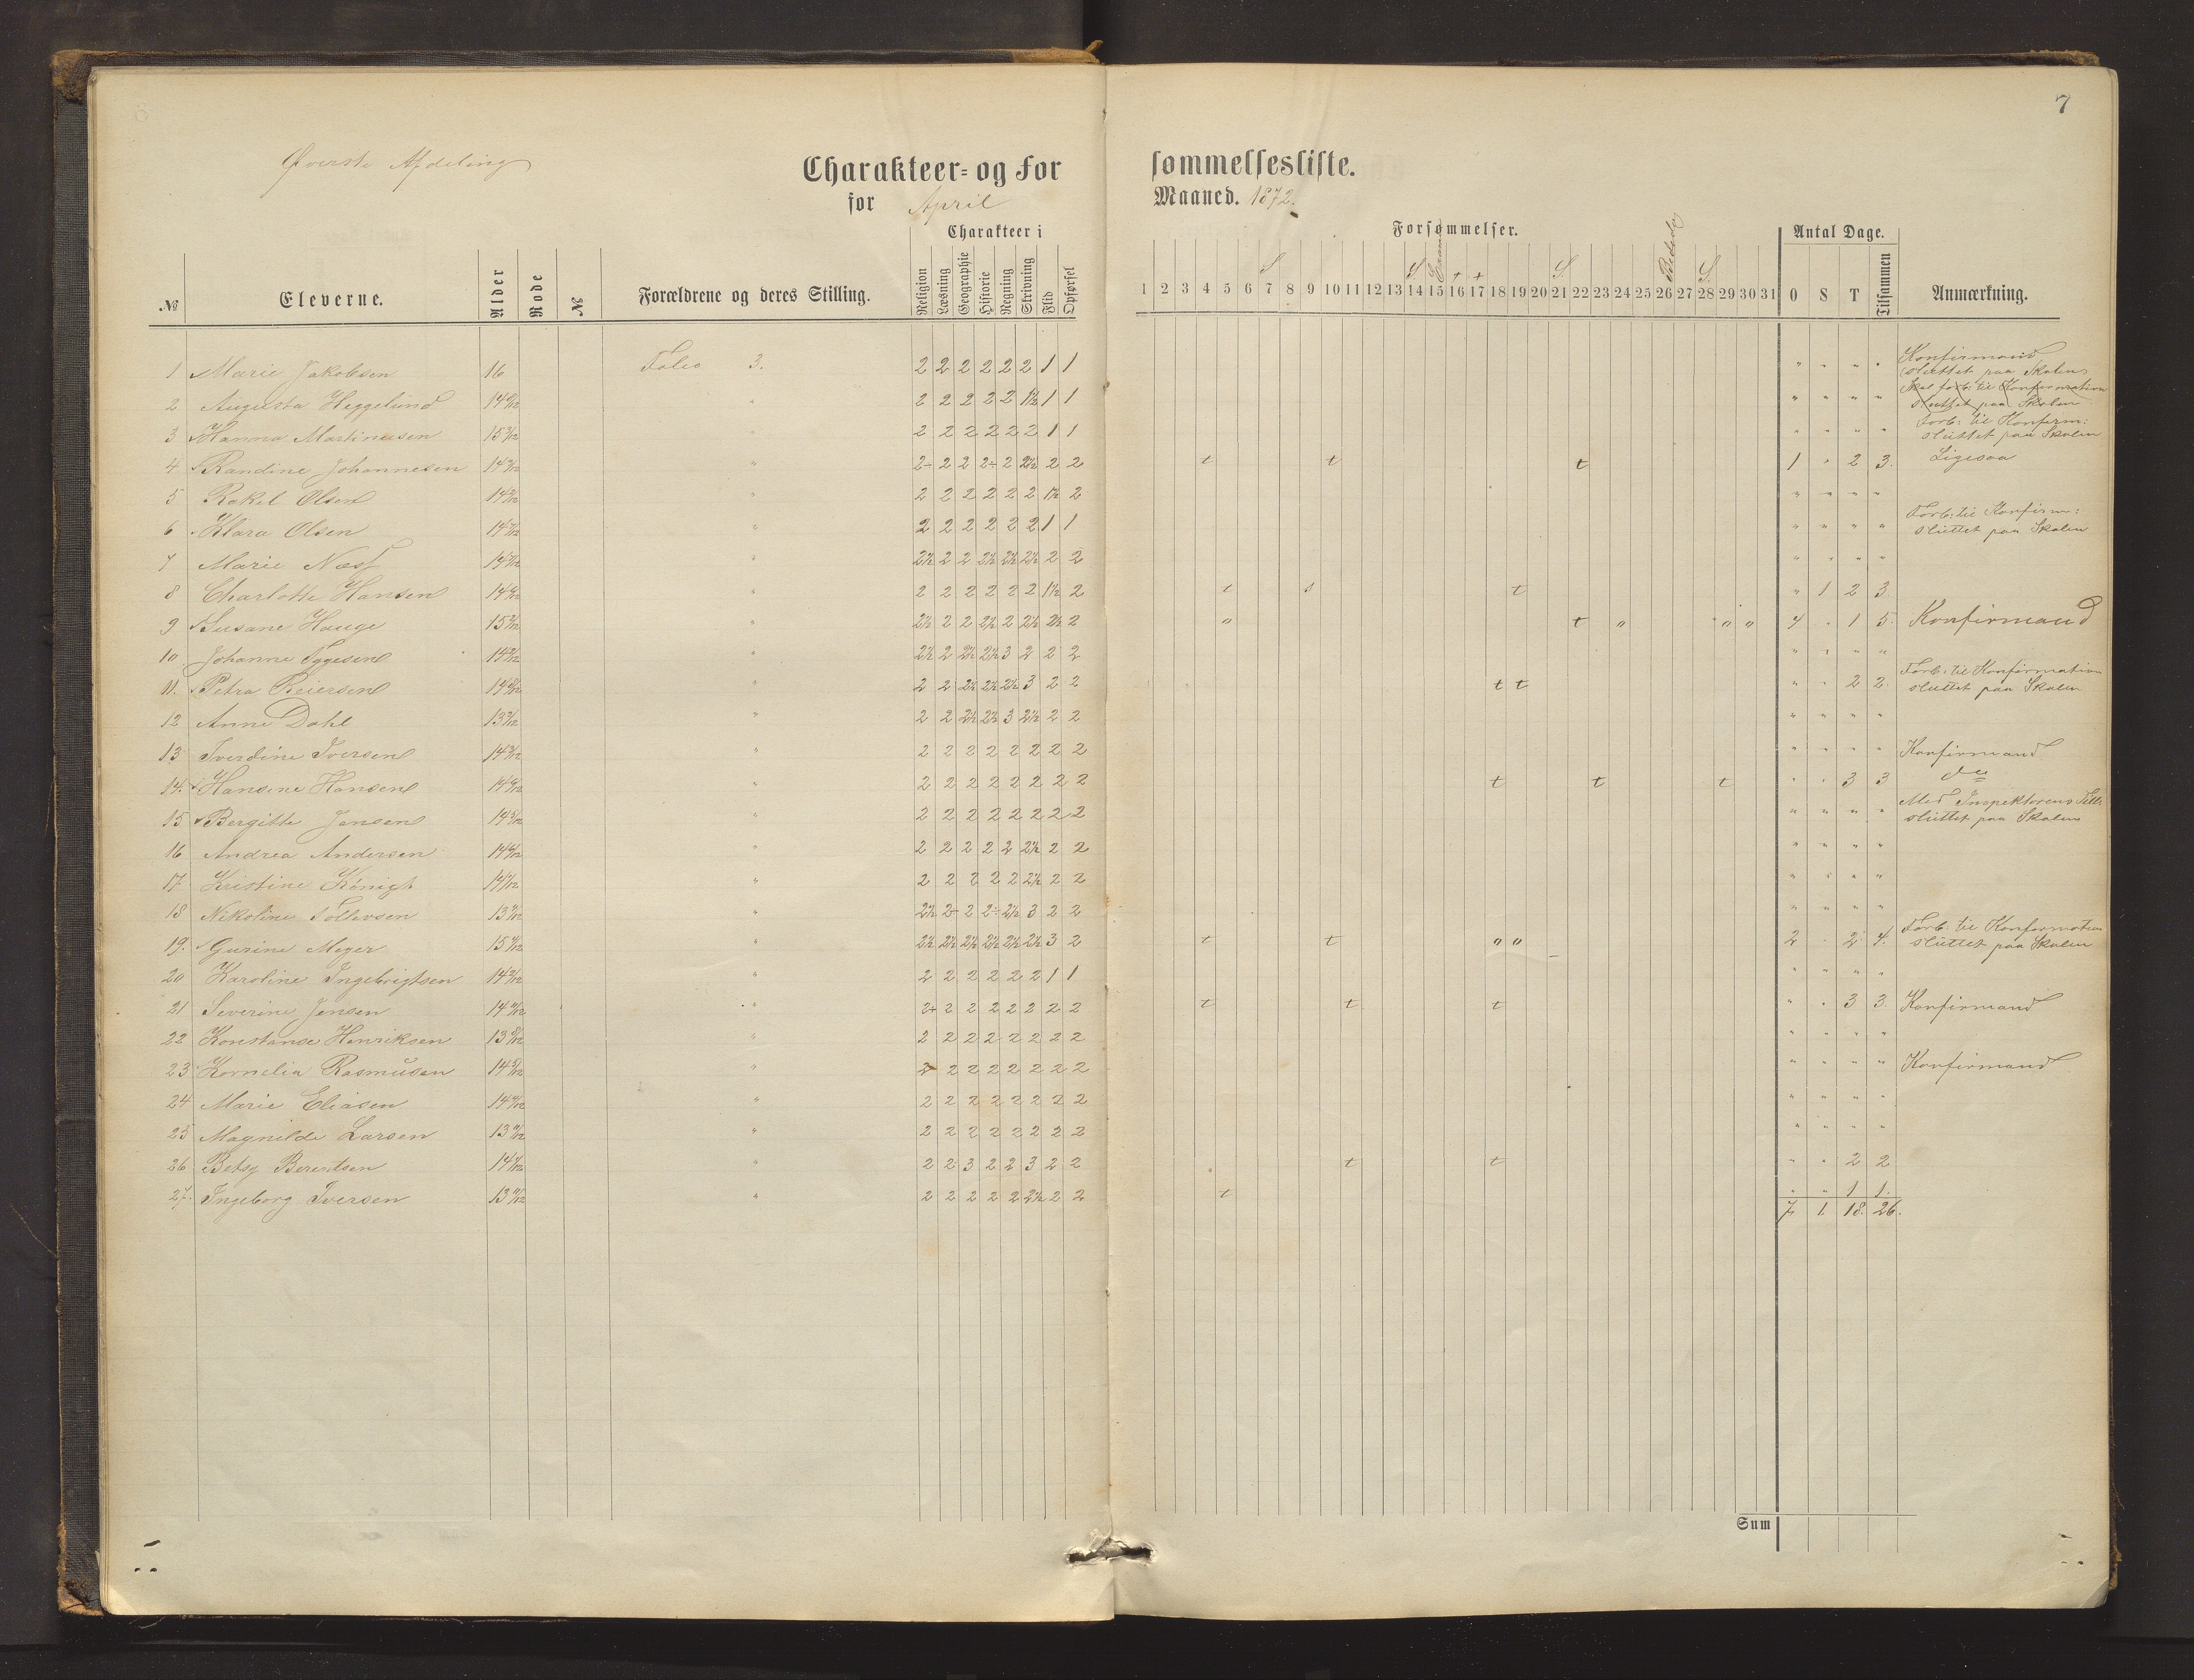 7
Øverste Afdeling
Charakteer- og For sømmelsesliste.
for April Maaned. 1872.
Charakteer i Forsømmelser. Antal Dage.
№ Eleverne. Alder Rode № Forældrene og deres Stilling. Religion Læsning Geographie Historie Regning Skrivning Flid Opførsel 1 2 3 4 5 6 7 8 9 10 11 12 13 14 15 16 17 18 19 20 21 22 23 24 25 26 27 28 29 30 31 0 S T Tilsammen Anmærkning.
S S + + S. Bededag S.
1 Marie Jakobsen 16 Folio 3. 2 2 2 2 2 2 1 1 " " " " Konfirmand sluttet paa Skolen
2 Augusta Heggelund 2 2 2 2 2 1½ 1 1 " " " " Skal forb. til Konfirmation sluttet paa Skolen
3 Hanna Martinusen " 2 2 2 2 2 2 1 1 " " " " Forb: til Konfirm: sluttet paa Skolen
4 Randine Johannesen " 2÷ 2 2 2÷ 2 2½ 2 2 t t t 1 " 2 3. Ligesaa
5 Rakel Olsen " 2 2 2 2 2 2 1½ 2 " " " "
6 Klara Olsen " 2 2 2 2 2 2 1 1 " " " " Forb: til Konfirm: sluttet paa Skolen
7 Marie Næss " 2½ 2 2 2½ 2½ 2½ 2 2 " " " "
8 Charlotte Hansen " 2 2 2 2 2 2 1½ 2 t s t " 1 2 3
9 Susane Hauge " 2½ 2 2 2½ 2 2½ 2½ 2 o t o o o 4 " 1 5. Konfirmand
10 Johanne Tygesen " 2½ 2 2½ 2½ 3 2 2 2 " " " "
11. Petra Reiersen " 2 2 2½ 2½ 2½ 3 2 2 t t " " 2 2. Forb: til Konfirmation sluttet paa Skolen
12 Anne Dahl " 2 2 2½ 2½ 3 2½ 2 2 " " " "
13 Iverdine Iversen " 2 2 2 2 2 2 2 2 " " " " Konfirmand
14. Hansine Hansen " 2 2 2 2 2 2 2 2 t t t " " 3 3 do
15 Bergitte Jensen " 2 2 2 2 2 2 2 2 " " " " Med Inspektorens Till: sluttet paa Skolen
16 Andrea Andersen " 2 2 2 2 2 2½ 2 2 " " " "
17 Kristine Königt " 2 2 2 2 2 2½ 2 2 " " " "
18 Nikoline Tollevsen " 2½ 2÷ 2 2÷ 2½ 3 2 2 " " " "
19. Gurine Meyer " 2½ 2½ 2½ 2½ 2½ 2½ 3 2 t t o o 2 " 2 4. Forb. til Konfirmation sluttet paa Skolen
20 Karoline Ingebrigtsen " 2 2 2 2 2 2 1 1 " " " "
21 Severine Jensen " 2+ 2 2 2 2 2 2 2 t t t " " 3 3. Konfirmand
22 Konstanse Henriksen " 2 2 2 2 2 2 2 2 " " " "
23 Kornelia Rasmusen " 2 2 2 2 2 2 2 2 " " " " Konfirmand
24 Marie Eliasen " 2 2 2 2 2 2 2 2 " " " "
25 Magnilde Larsen " 2 2 2 2 2 2 2 2 " " " "
26 Betsy Berentsen " 2 2 3 2 2 3 2 2 t t " " 2 2
27. Ingeborg Iversen " 2 2 2 2 2 2½ 2 2 t " " 1 1.
7 1. 18. 26.
Sum